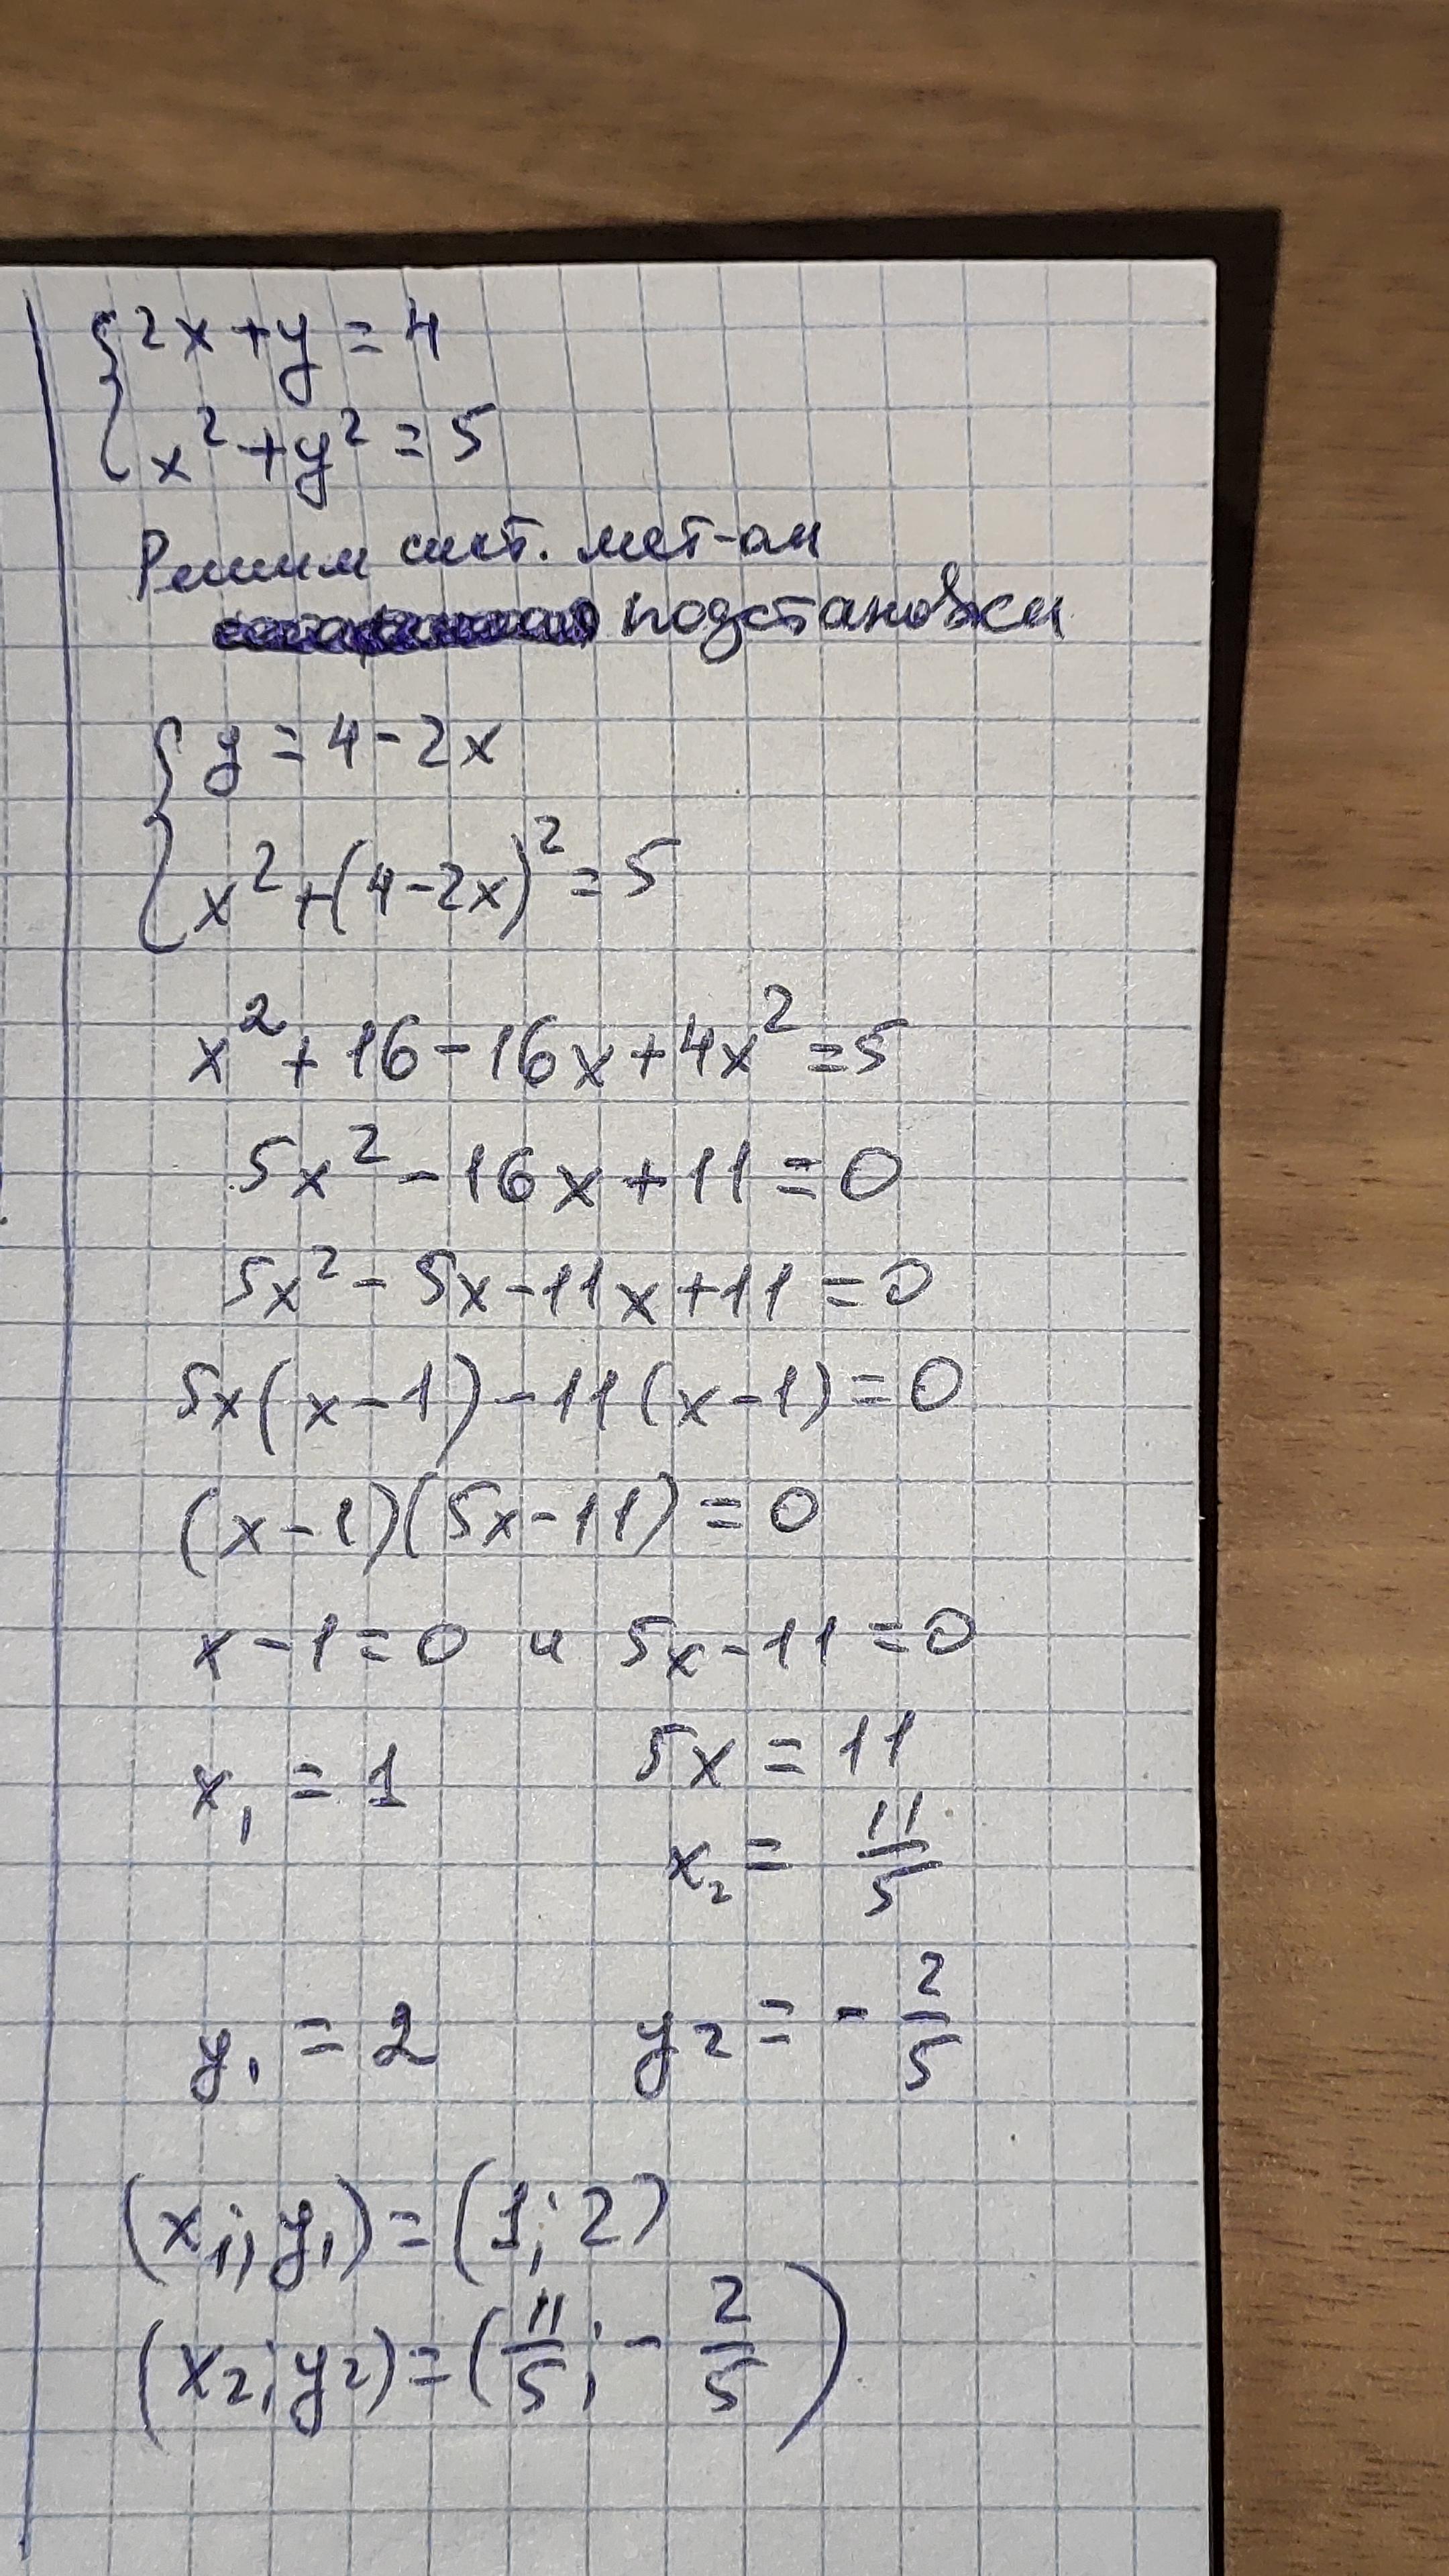 {2x+y=4
{x²+y²=5
Решим сист. мет-ом
подстановки
{y=4-2x
{x²+(4-2x)²=5
x²+16-16x+4x²=5
5x²-16x+11=0
5x²-5x-11x+11=0
5x(x-1)-11(x-1)=0
(x-1)(5x-11)=0
x-1=0 и 5x-11=0
x₁=1 5x=11
x₂=11/5
y₁=2 y₂=-2/5
(x₁;y₁)=(1;2)
(x₂;y₂)=(11/5;-2/5)